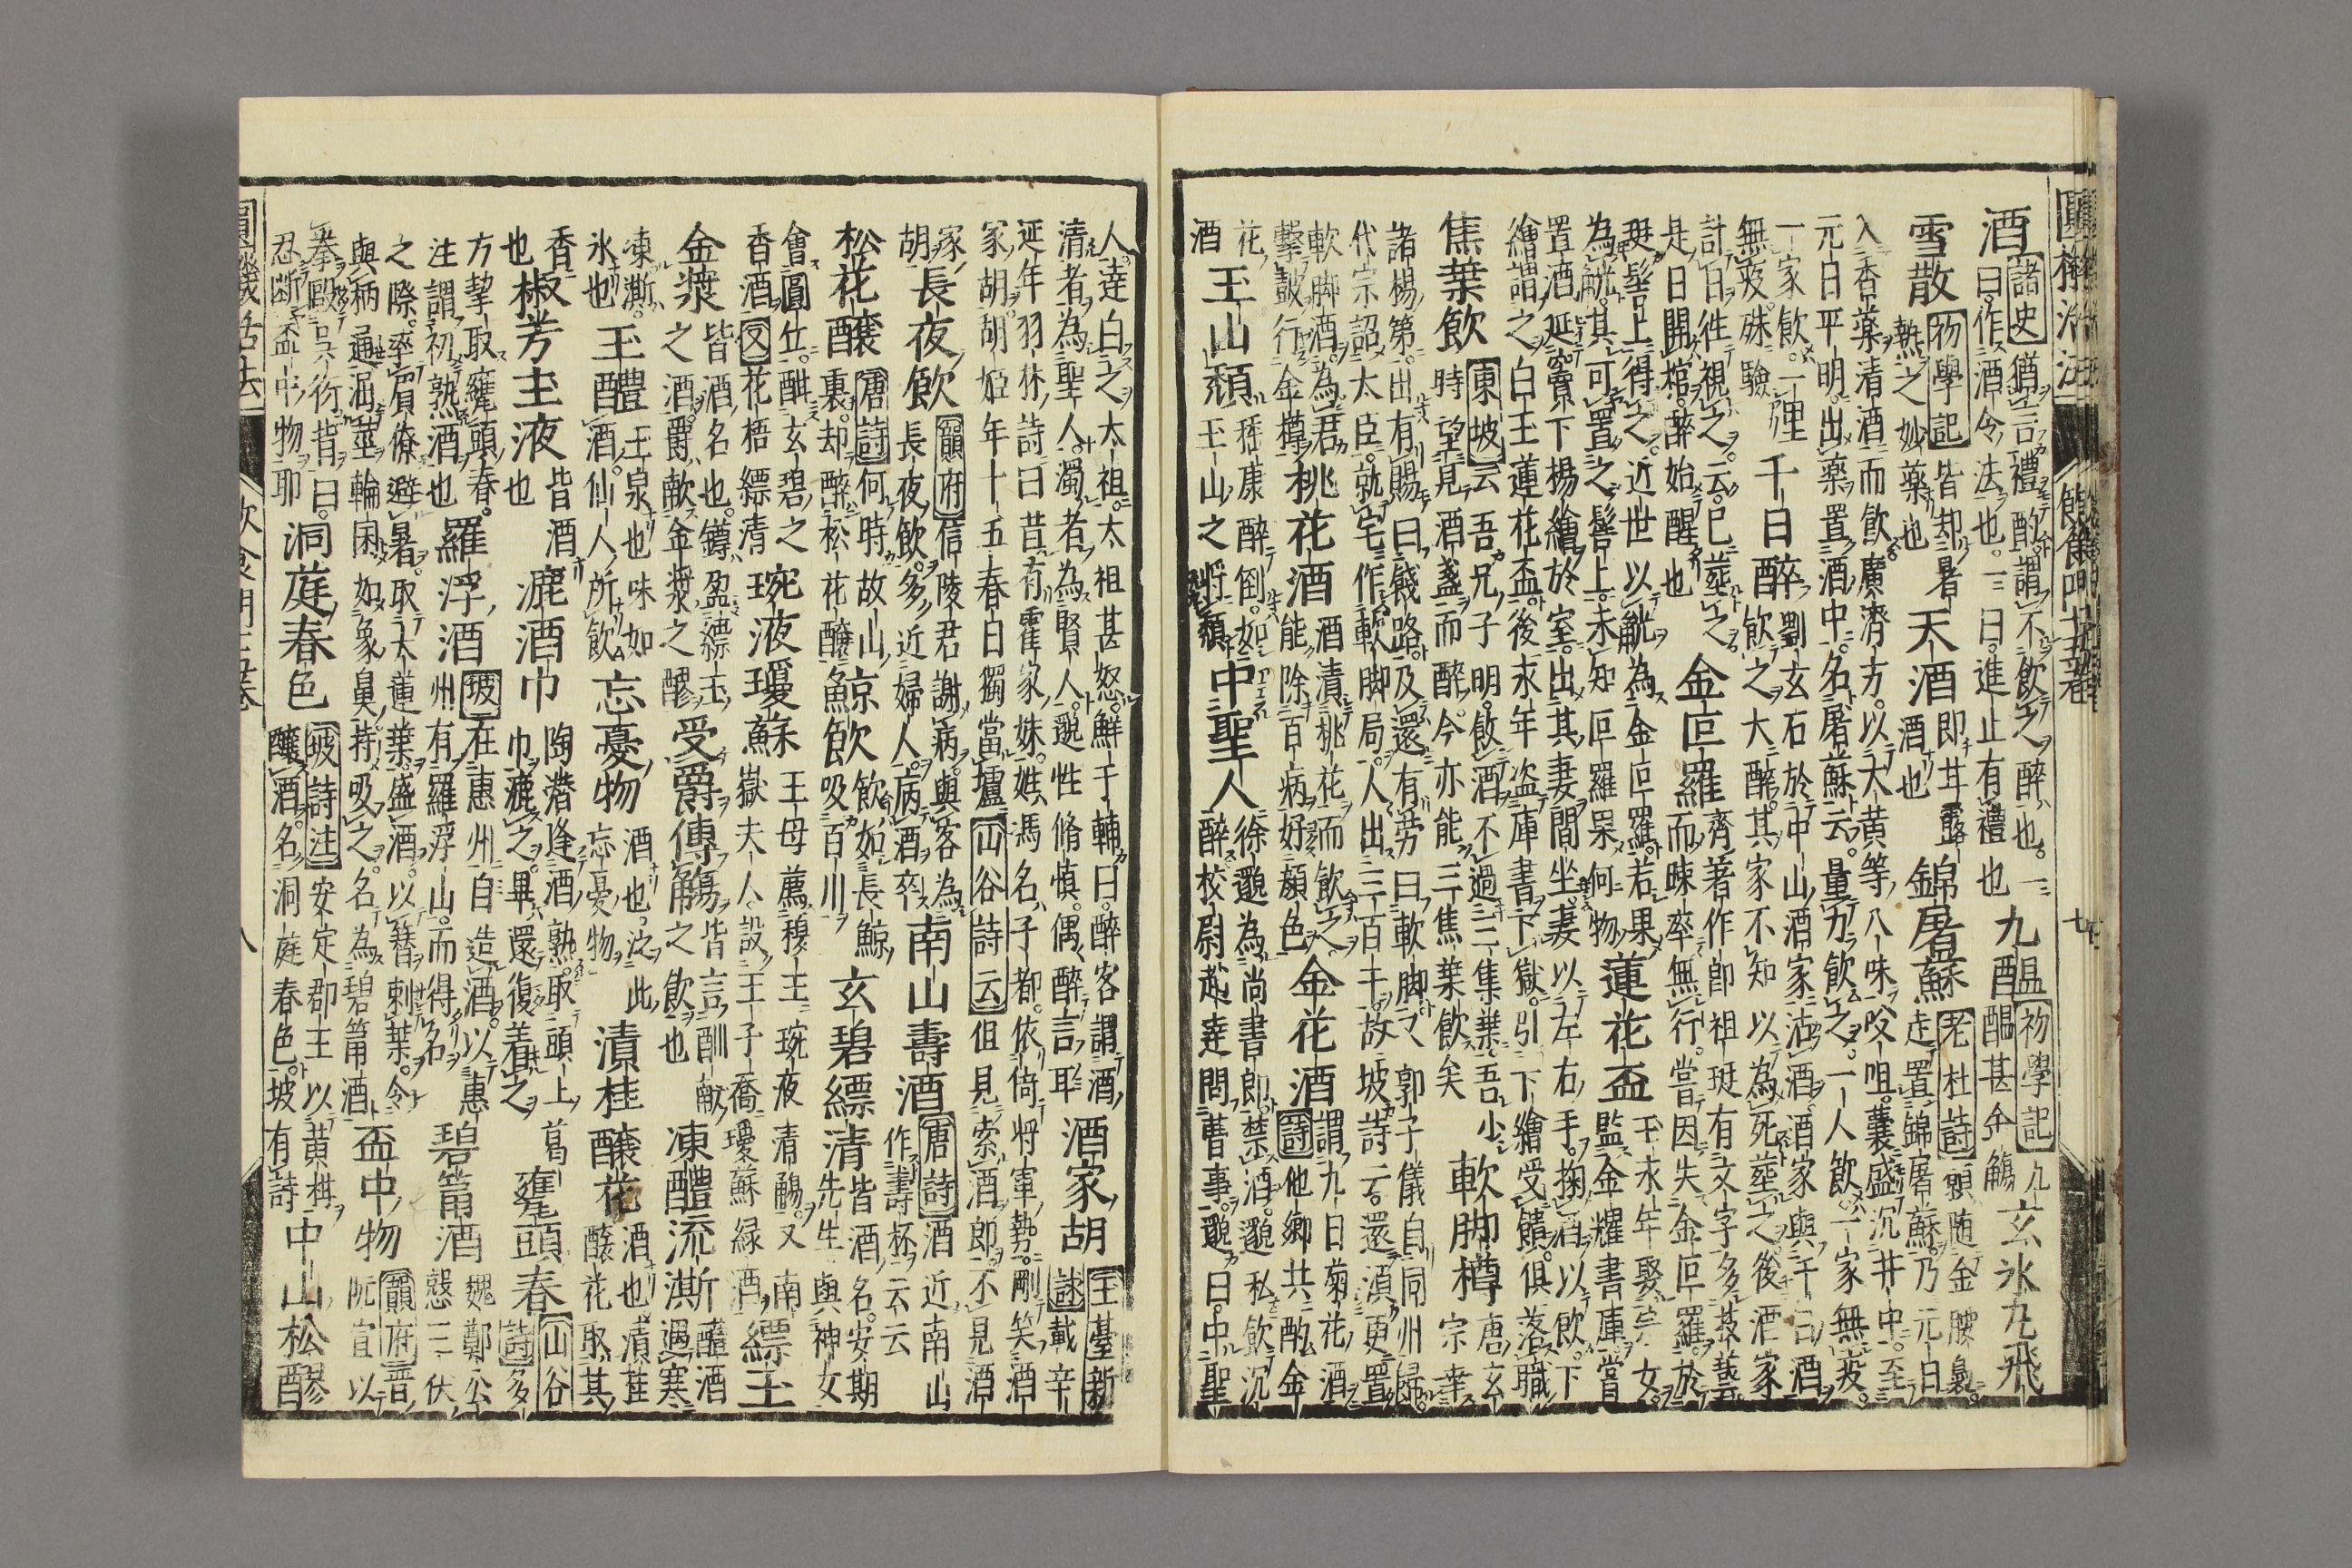 酒 諸史 猶言禮酌謂不飲之醉也一
曰作酒令法也一曰進止有禮也 九醞 初學記 九
醞甚企觴 玄氷九飛
雪散 初學記 皆却暑
熱之妙藥也 天酒 即甘露
酒也 錦屠蘇 老杜詩 頭随金腰褭
走置錦屠蘇乃元日
入香藥清酒而飲廣濟方以大黄等八味咬咀囊盛沉井中至
元日平明出藥置酒中名屠蘇云量力飲之一人飲一家無疫
一家飲一理
無疫殊驗 千日醉 劉玄石於中山酒家沽酒酒家與千日酒
飲之大醉其家不知以為死葬之後酒家
計日徃視之云已葬之
是日開棺醉始醒也 金叵羅 齊著作郎祖珽有文字多技藝
而踈率無行嘗因失金叵羅於
珽髻上得之近世以觥為金叵羅若果
為觥其可置之髻上未知叵羅杲何物 蓮花盃 王永年娶宗女
監金耀書庫嘗
置酒延竇下楊繪於室出其妻間坐妻以左右手掬酒以飲下
繪謂之白玉蓮花盃後永年盗庫書下獄引下繪受饋俱落職
焦葉飲 東坡 云吾兄子明飲酒不過三集葉吾少
時望見酒盞而醉今亦能三焦葉飲矣 軟脚樽 唐玄
宗幸
諸楊第出有賜曰餞路及還有労曰軟脚又郭子儀自同州歸
代宗詔大臣就宅作軟脚局人出三百千故坡詩云還湏更置
軟脚酒為君
擊皷行金樽 桃花酒 酒漬桃花而飲之
能除百病好顔色 金花酒 謂九日菊花酒
詩 他郷共酌金
花
酒 玉山頽 嵇康醉倒如
玉山之將頽 中聖人 徐邈為尚書郎禁酒邈私飲沉
醉校尉趙達問曹事邈曰中聖
人達白之太祖太祖甚怒鮮于輔曰醉客謂酒
清者為聖人濁者為賢人邈性脩慎偶醉言耳 酒家胡 玉臺新
詠 載辛
延年羽林詩曰昔有霍家妹姓馮名子都依倚将軍勢剛笑酒
家胡胡姫年十五春日獨當壚 山谷詩云 但見索酒郎不見酒
家
胡 長夜飲 韻府 信陵君謝病與客為
長夜飲多近婦人病酒卒 南山壽酒 唐詩 酒近南山
作壽杯云云
松花釀 唐詩 何時故山
裏却醉松花釀 鯨飲 飲如長鯨
吸百川 玄碧縹清 皆酒名安期
先生與神女
會圓丘酣玄碧之
香酒 文 花梧縹清 琬液瓊蘇 王母薦穆王琬液清觴又南
嶽夫人設王子喬瓊蘇緑酒 縹玉
金漿 皆酒名也鐏盈縹玉
之酒爵献金漿之醪 受爵傳觴 皆言酬献
之飲也 凍醴流澌 醴酒
遇寒
凍澌
氷也 玉醴 玉泉也味如
酒仙人所飲 忘憂物 酒也泛此
忘憂物 漬桂釀花 酒也漬桂
釀花取其
香
也 椒芳主液 皆酒
也 漉酒巾 陶潜逢酒熟取頭上葛
巾漉之畢還復着之 甕頭春 山谷
詩 多
方挈取甕頭春
注謂初熟酒也 羅浮酒 坡 在惠州自造酒以惠
州有羅浮山而得名 碧筩酒 魏鄭公
愨三伏
之際率賓僚避暑取大蓮葉盛酒以簪刺葉令
與柄通洇莖輪困如象鼻持吸之名為碧筩酒 盃中物 韻府 晋
阮宣以
拳毆吳衍背曰
忍断盃中物耶 洞庭春色 坡詩注 安定郡王以黄柑
釀酒名洞庭春色坡有詩 中山松醪